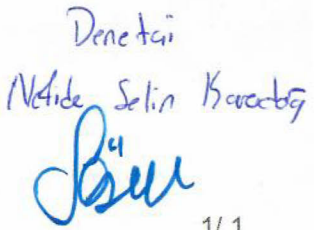 Denetçi
Nefide Selin Karadağ
1/1